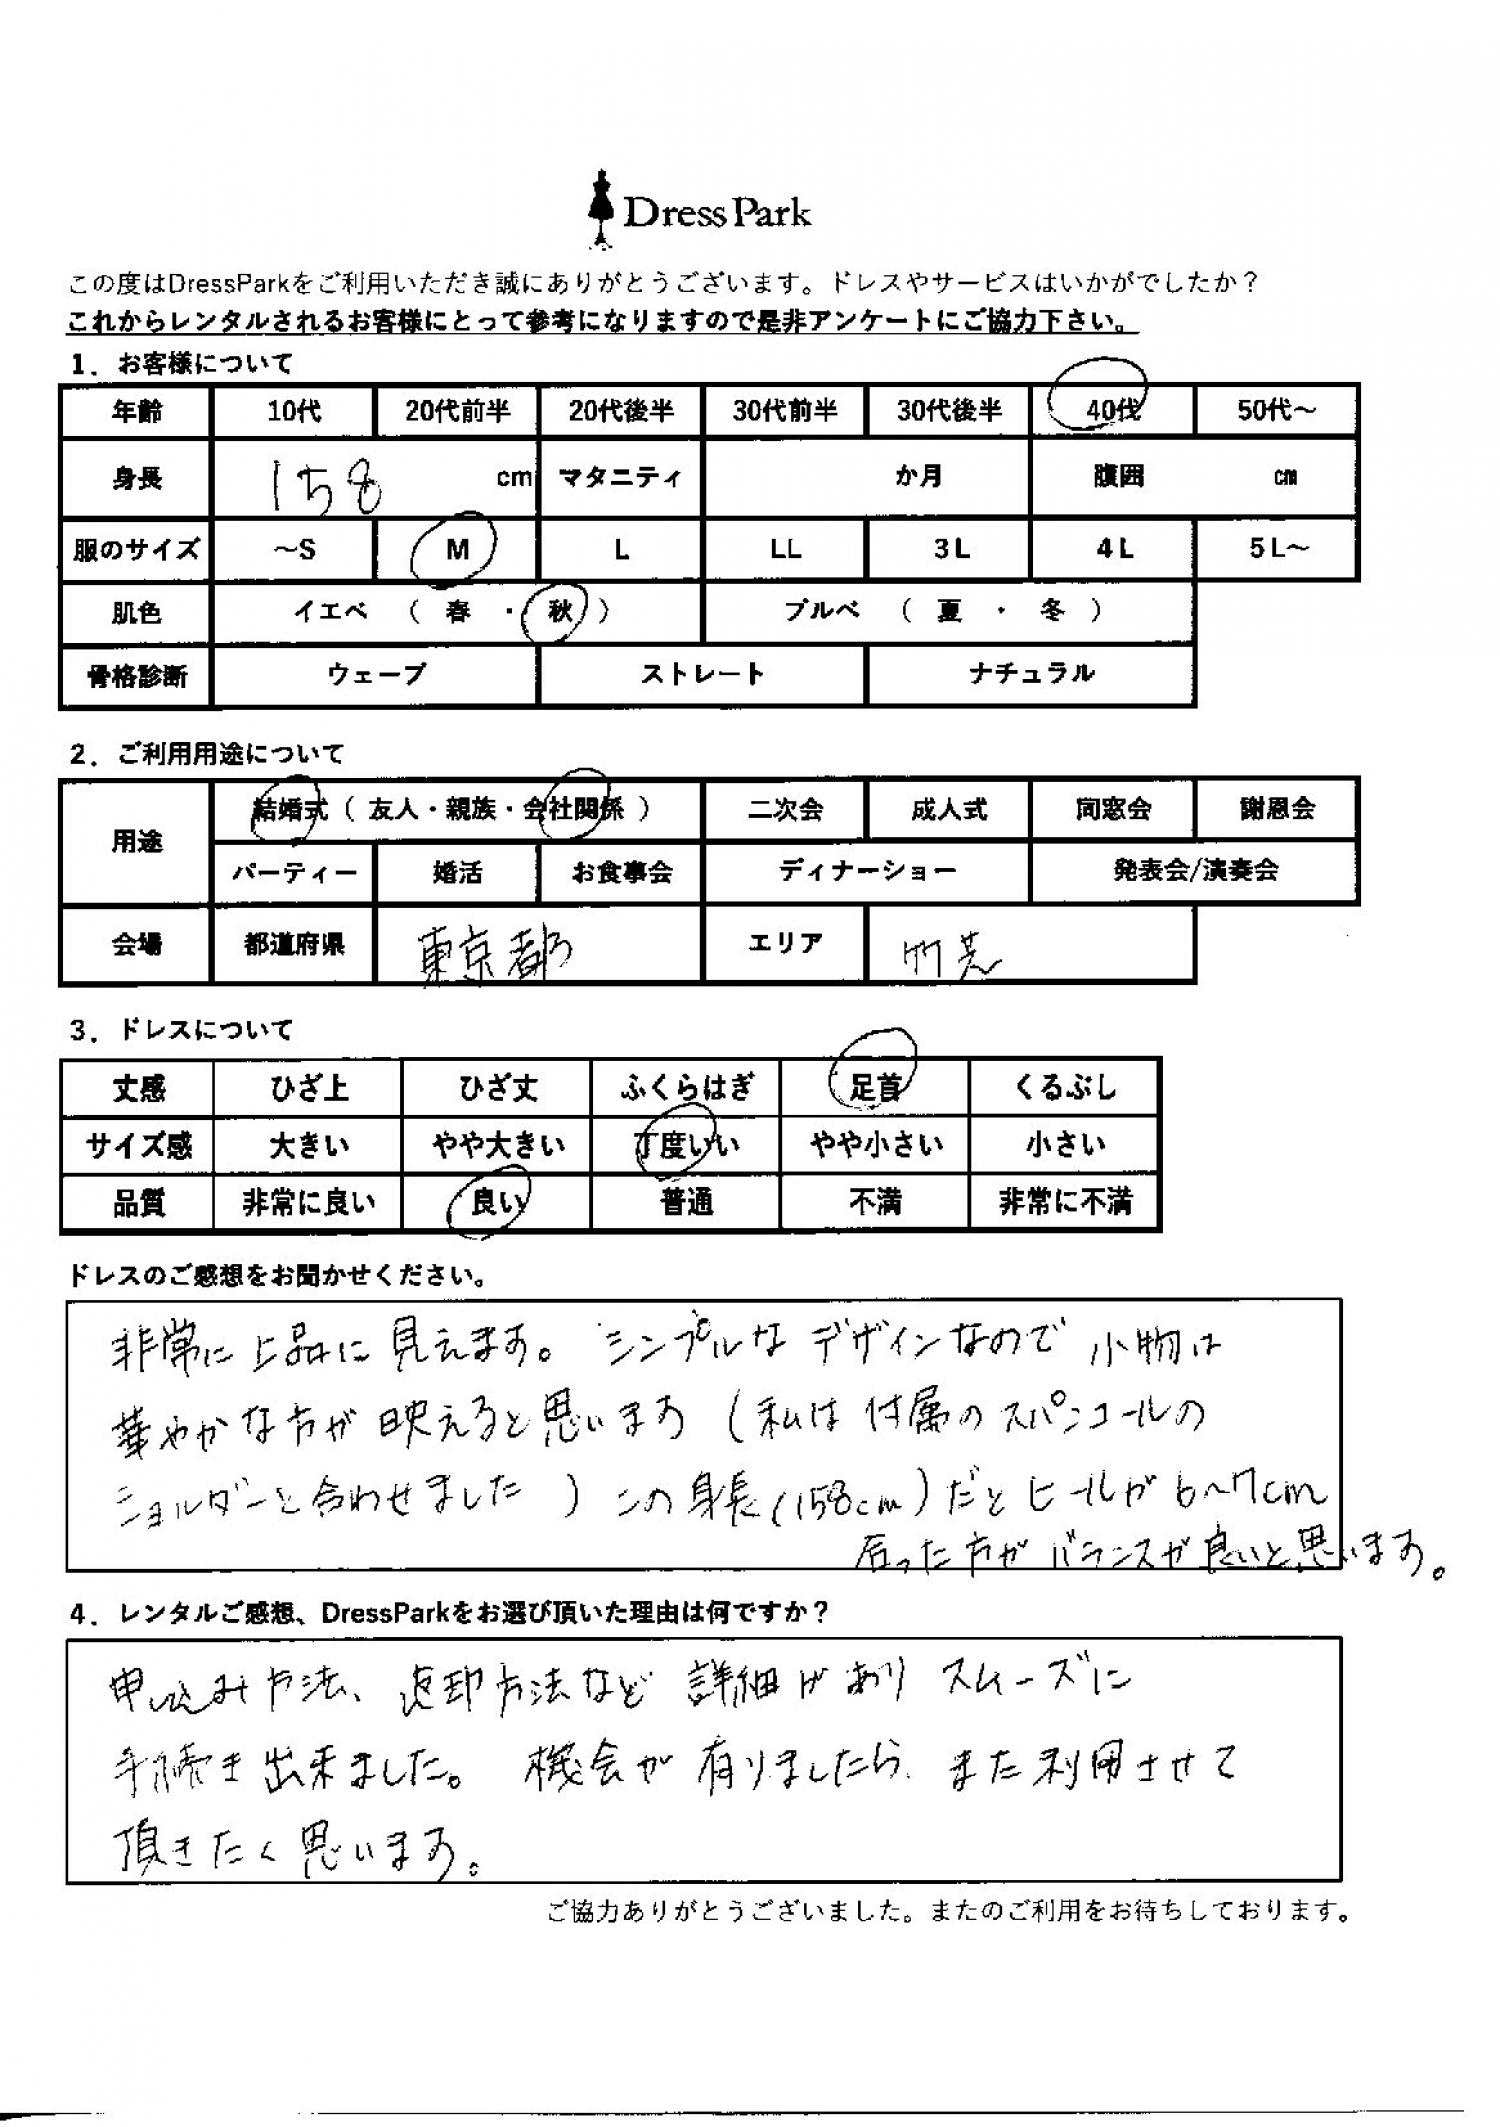 DressPark
この度はDressParkをご利用いただき誠にありがとうございます。ドレスやサービスはいかがでしたか？
これからレンタルされるお客様にとって参考になりますので是非アンケートにご協力下さい。
1．お客様について
年齢 10代 20代前半 20代後半 30代前半 30代後半 40代 50代～
身長 158 cm マタニティ か月 腹囲 cm
服のサイズ ～S M L LL 3L 4L 5L～
肌色 イエベ （ 春 ・ 秋 ） ブルベ （ 夏 ・ 冬 ）
骨格診断 ウェーブ ストレート ナチュラル
2．ご利用用途について
用途 結婚式（ 友人・親族・会社関係 ） 二次会 成人式 同窓会 謝恩会
パーティー 婚活 お食事会 ディナーショー 発表会/演奏会
会場 都道府県 東京都 エリア 竹芝
3．ドレスについて
丈感 ひざ上 ひざ丈 ふくらはぎ 足首 くるぶし
サイズ感 大きい やや大きい 丁度いい やや小さい 小さい
品質 非常に良い 良い 普通 不満 非常に不満
ドレスのご感想をお聞かせください。
非常に上品に見えます。シンプルなデザインなので小物は
華やかな方が映えると思います（私は付属のスパンコールの
ショルダーと合わせました）この身長（158cm）だとヒールが6～7cm
合った方がバランスが良いと思います。
4．レンタルご感想、DressParkをお選び頂いた理由は何ですか？
申し込み方法、返却方法など詳細がありスムーズに
手続き出来ました。機会が有りましたら、また利用させて
頂きたく思います。
ご協力ありがとうございました。またのご利用をお待ちしております。